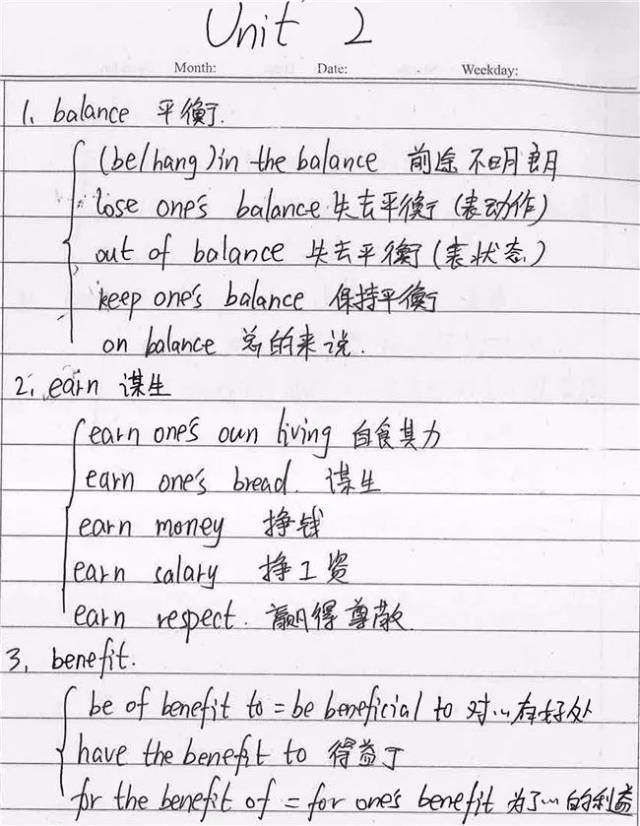 Unit 2
Month: Date: Weekday:
1. balance 平衡.
(be/hang) in the balance 前途不明朗
lose one's balance 失去平衡 (表动作)
out of balance 失去平衡 (表状态)
keep one's balance 保持平衡
on balance 总的来说.
2. earn 谋生
earn one's own living 自食其力
earn one's bread. 谋生
earn money 挣钱
earn salary 挣工资
earn respect. 赢得尊敬
3. benefit.
be of benefit to = be beneficial to 对…有好处
have the benefit to 得益于
for the benefit of = for one's benefit 为了…的利益